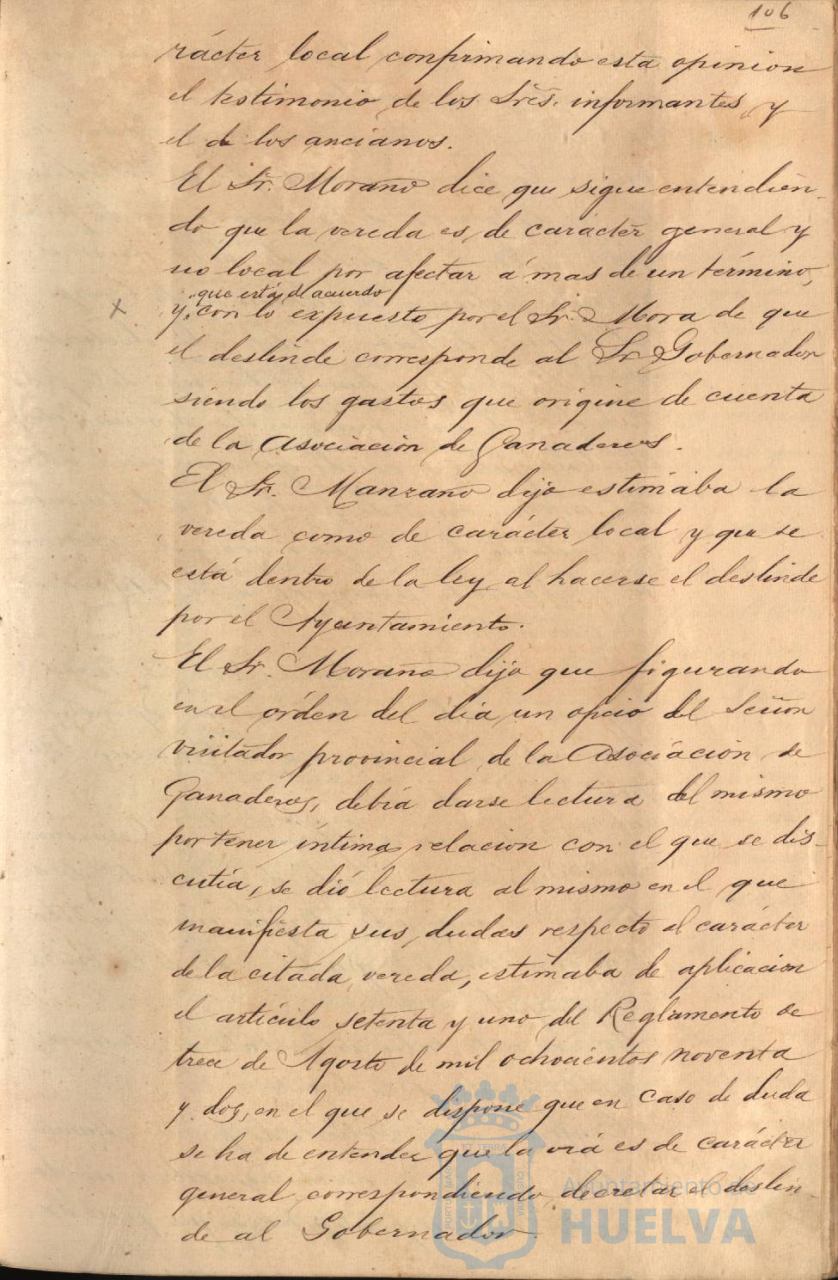 106
rácter local confirmando esta opinion
el testimonio de los Sres. informantes, y
el de los ancianos.
El Sr. Moraño dice que sigue entendién-
do que la vereda es de carácter general y
no local por afectar á mas de un término,
que está de acuerdo
y, con lo expuesto por el Sr. Mora de que
el deslinde corresponde al Sr. Gobernador
siendo los gastos que origine de cuenta
de la Asociación de Ganaderos.
El Sr. Manzano dijo estimaba la
vereda como de carácter local y que se
está dentro de la ley al hacerse el deslinde
por el Ayuntamiento.
El Sr. Moraño dijo que figurando
en el órden del dia un oficio del Señor
visitador provincial de la Asociación de
Ganaderos, debia darse lectura del mismo
por tener íntima relacion con el que se dis-
cutía, se dió lectura al mismo en el que
manifiesta sus dudas respecto al carácter
de la citada vereda, estimaba de aplicacion
el artículo setenta y uno del Reglamento de
trece de Agosto de mil ochocientos noventa
y dos, en el que se dispone que en caso de duda
se ha de entender que la via es de carácter
general correspondiendo decretar el deslin-
de al Gobernador.
Ayuntamiento de
HUELVA